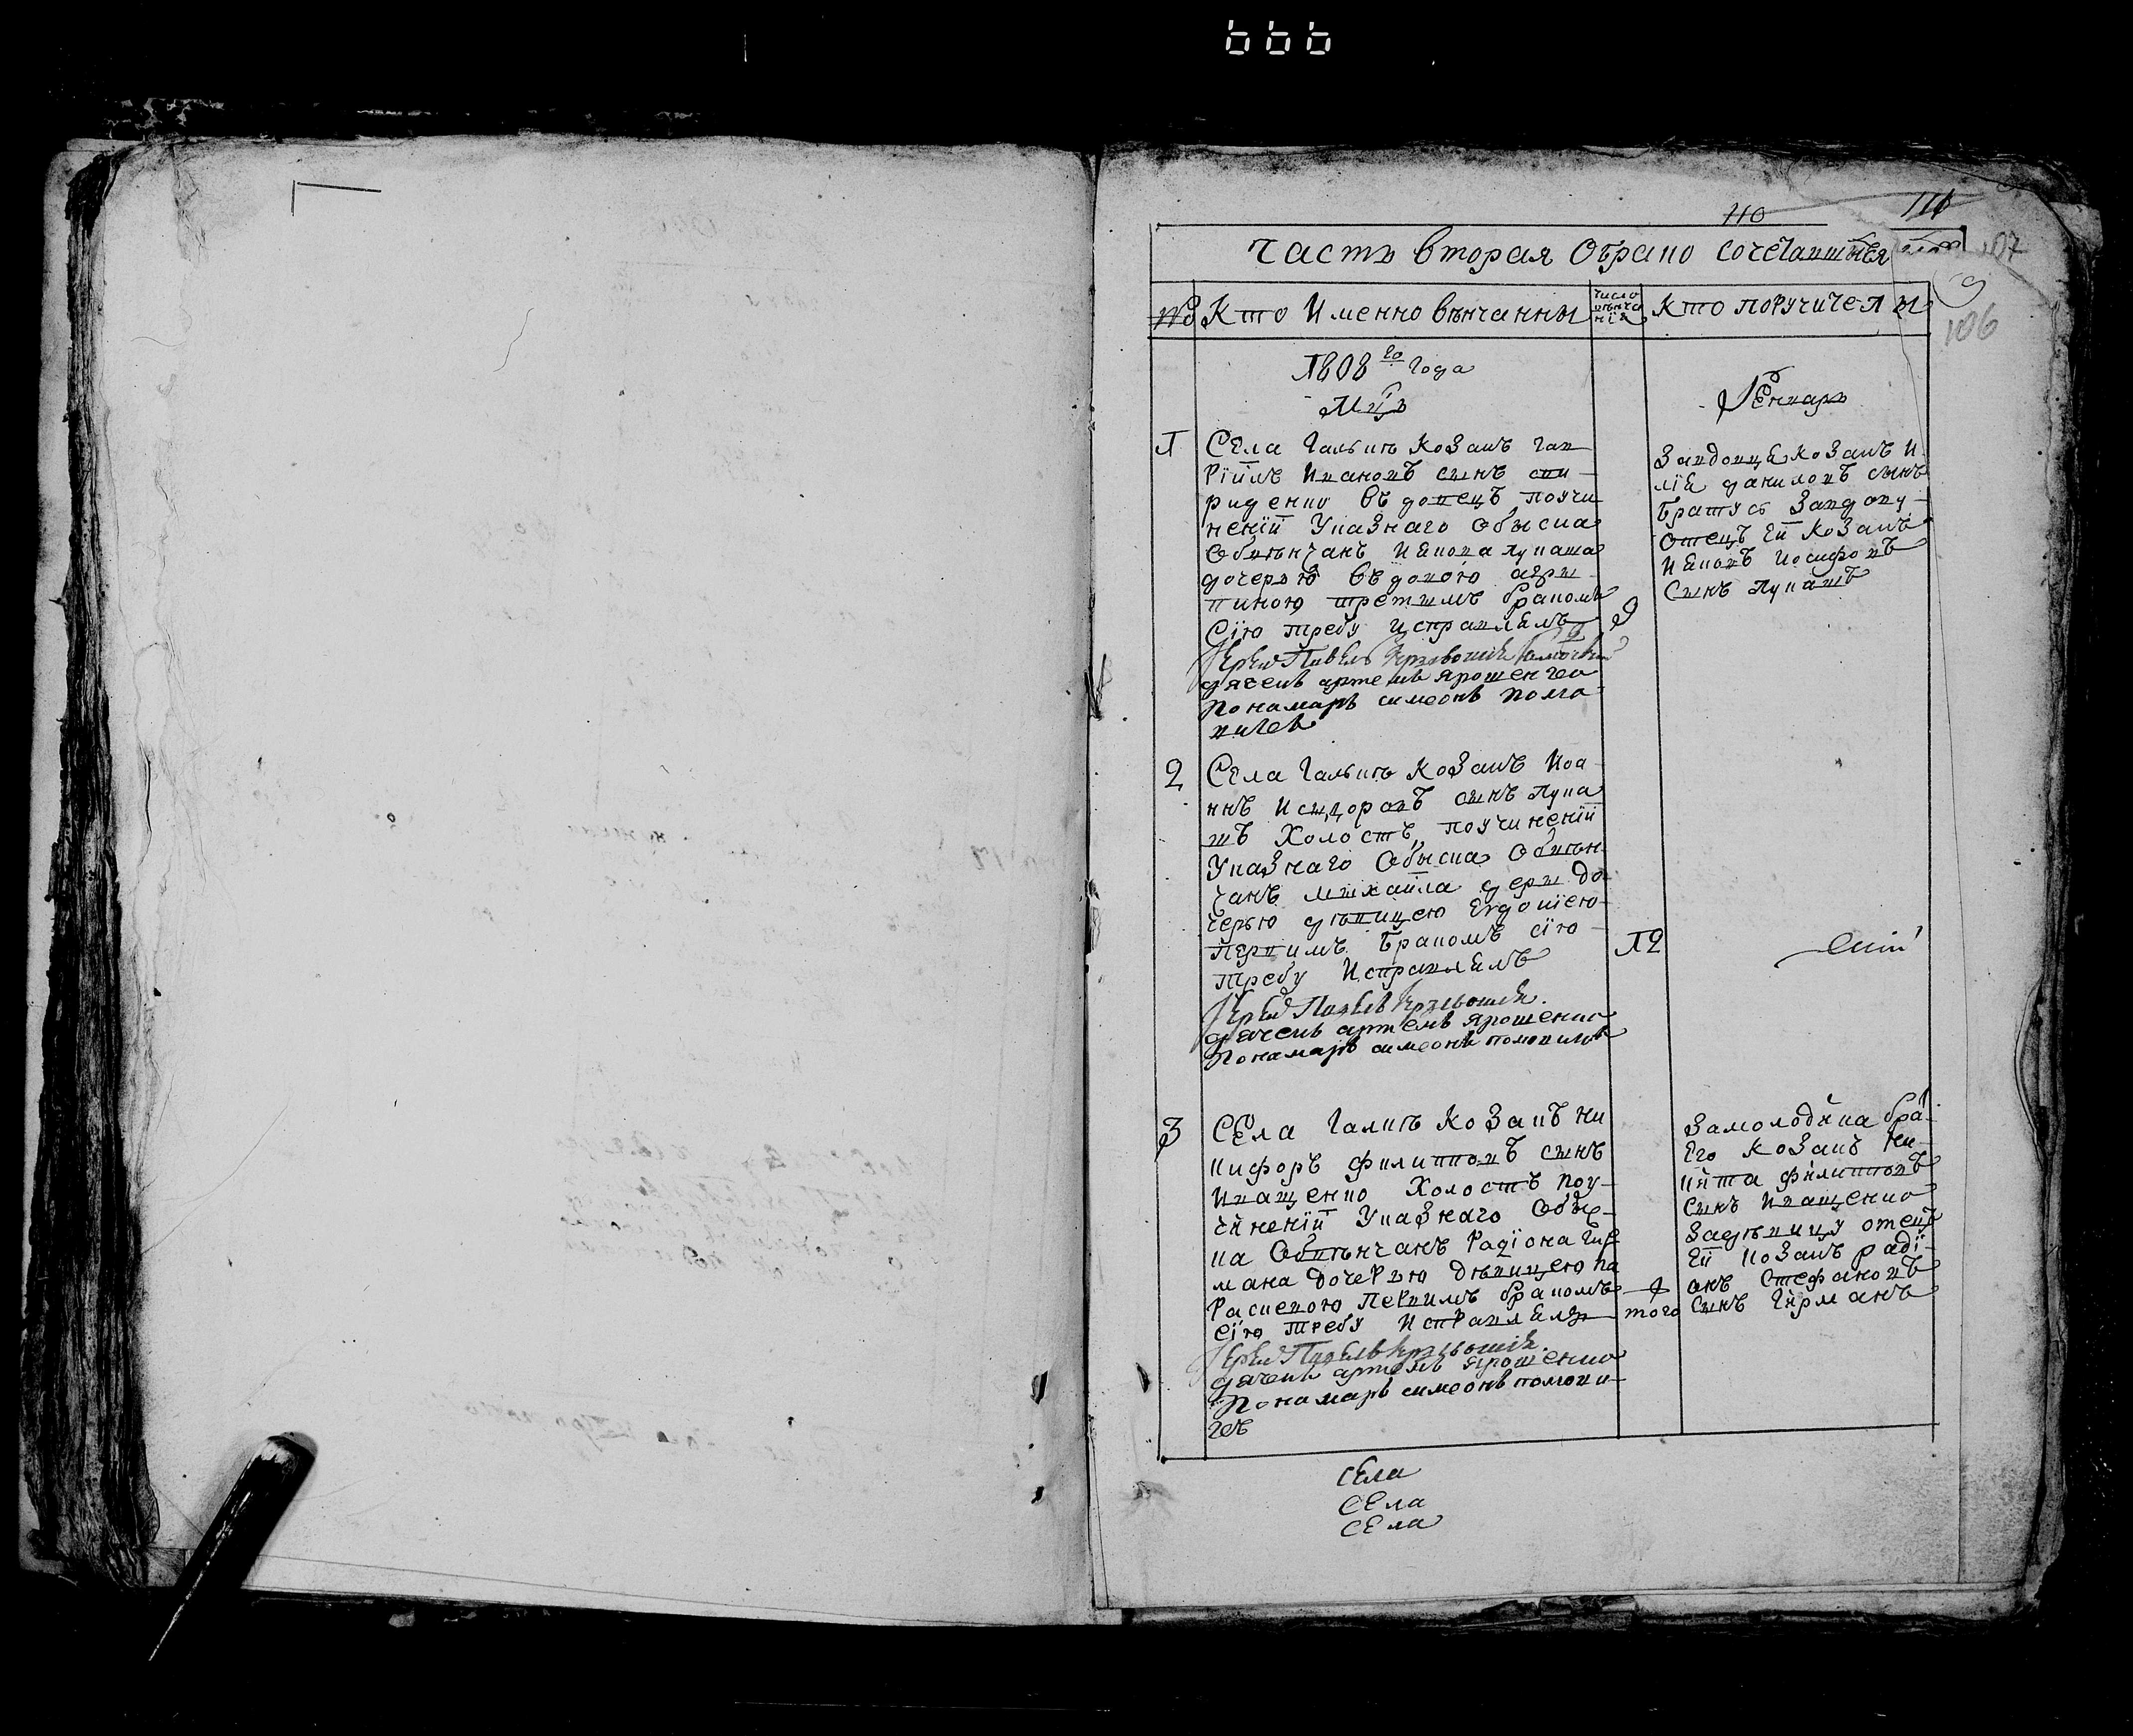 666
110
111
107
106
часть вторая О бракосочетавшихся
№ Кто Именно вѣнчанны
число вѣнча нїя
кто поручители
1808го года
Мцъ
Генварь
1 Села Галыцъ Козакъ гав
рїилъ Ивановъ сынъ спи
риденко въдовецъ поучи
ненїй Указнаго Обыска
Обвѣнчанъ Иякова лукаша
дочерью въдовою агри
пиною третимъ бракомъ
Сїю требу исправлялъ 9
Іерей Павелъ
дячекъ артемъ ярошенко
Пономаръ симеонъ
Завдовця козакъ И
лїя даниловъ сынъ
братусь Завдову
Отецъ Ей Козакъ
Ияковъ Иосифовъ
Сынъ лукашъ
2 Села Галыцъ Козакъ Иоа
ннъ Исидоровъ сынъ лука
шъ Холостъ, поучиненїй
Указнаго Обыска Обвѣн
чанъ михайла дочерью
дѣвицею Евдокїею
первимъ бракомъ сїю
требу Исправлялъ
12
Іерей Павелъ
дячекъ артемъ ярошенко
Пономаръ симеонъ
3 Села Галицъ Козакъ ни
кифоръ филипповъ сынъ
Иващенко Холостъ поу
чиненїй Указнаго Обыс
ка Обвѣнчанъ Радїона гир
мана дочерью дѣвицею па
раскевою первимъ бракомъ
сїю требу Исправлялъ
того
Іерей Павелъ
дячекъ артемъ ярошенко
Пономаръ симеонъ
Замолодика бра
Его козакъ ни
кита филипповъ
сынъ Иващенко
Задѣвицу отецъ
Ей козакъ радї
онъ Стефановъ
сынъ Гирманъ
Села
Села
Села